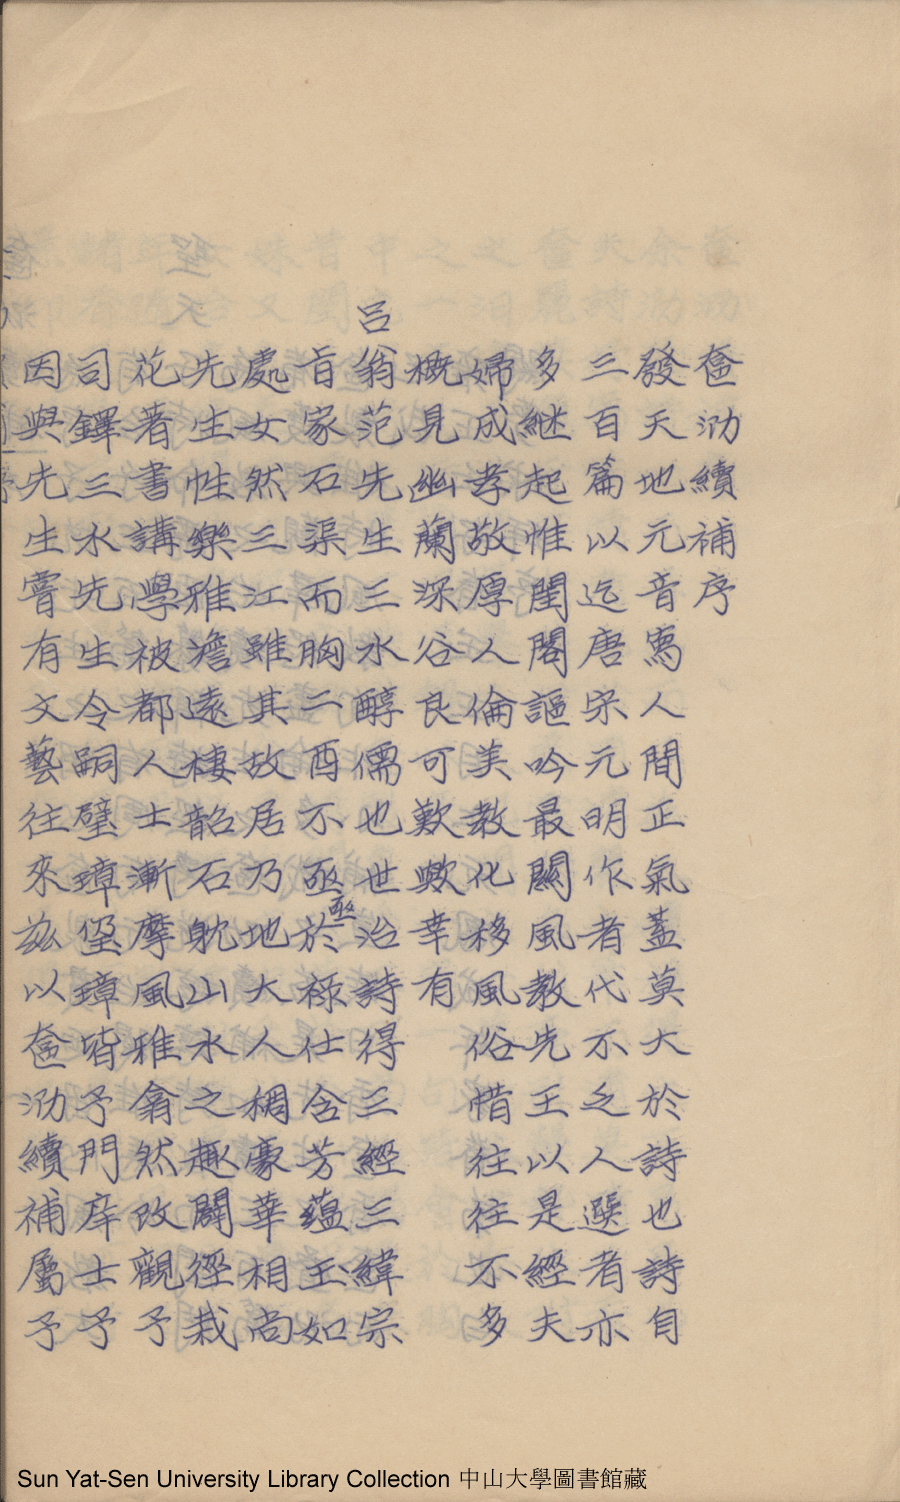 奩泐續補序
發天地元音寫人間正氣蓋莫大於詩也詩自
三百篇以迄唐宋元明作者代不乏人選者亦
多継起惟閨閣謳吟最關風教先王以是經夫
婦成孝敬厚人倫美教化移風俗惜往往不多
概見幽蘭深谷良可歎歟幸有
呂翁范先生三水醇儒也世治詩得三經三緯宗
旨家石渠而胸二酉不亟亟於祿仕含芳蘊玉如
處女然三江雖其故居乃地大人稠豪華相尚
先生性樂雅澹遠棲韶石躭山水之趣闢徑栽
花著書講學被都人士漸摩風雅翕然改觀予
司鐸三水先生令嗣璧璋垕璋皆予門庠士予
因與先生嘗有文藝往來茲以奩泐續補屬予
Sun Yat-Sen University Library Collection 中山大學圖書館藏